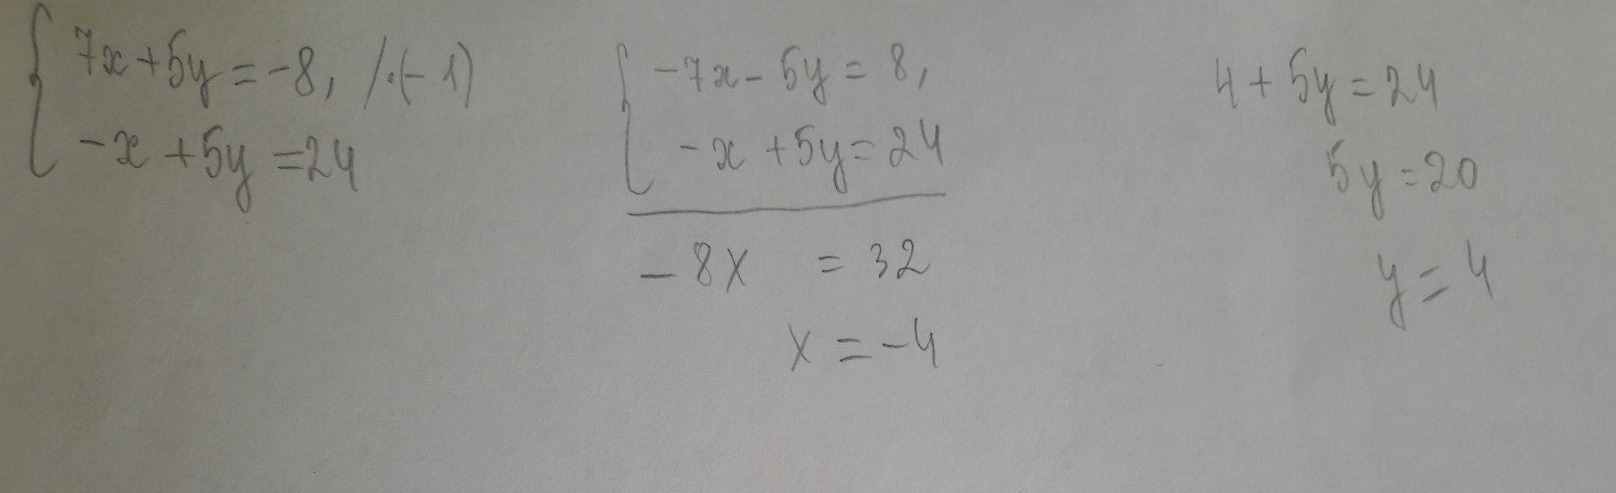 7x+5y=-8, /·(-1)
-x+5y=24
-7x-5y=8,
-x+5y=24
-8x =32
x=-4
4+5y=24
5y=20
y=4